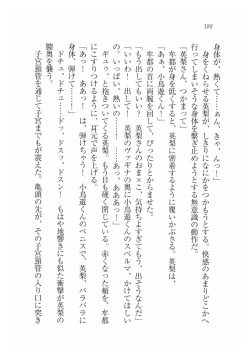 188
身体が、熱くて……ぁん、きゃ、んっ！」
身をくねらせる英梨が、しきりになにかをつかもうとする。快感のあまりどこかへ
行ってしまいそうな身体を繋ぎ止めようとする無意識の動作だ。
「英梨さん、つかまって」
牟都が身を低くすると、英梨に密着するように覆いかぶさる。英梨は、
「あぁ、小鳥遊くん！」
牟都の首に両腕を回して、ぴったりとからまった。
「もう出してもいい？　英梨さんのおま×こ、気持ちよすぎてもう、出そうなんだ」
「いいわ！　出して！　英梨のヴァギナの奥に小鳥遊くんのスペルマ、かけてほしい
の。いっぱい、熱いの……！　……あっ、ああっ！」
ギュゥ、と抱きついてくる英梨。もう目も硬く閉じている。赤くなった頬を、牟都
にこすりつけるように、耳元で声を上げる。
「あっ！　ああっ……！　は、弾けちゃう！　小鳥遊くんのペニスで、英梨、バラバラに
身体、弾けて……！」
ドチュ、ドチュ……ドッ、ドッ、ドスン！　もはや地響きにも似た衝撃が英梨の
膣奥を襲う。
子宮頸管を通じて子宮までもが震えた。亀頭の先が、その子宮頸管の入り口に突き